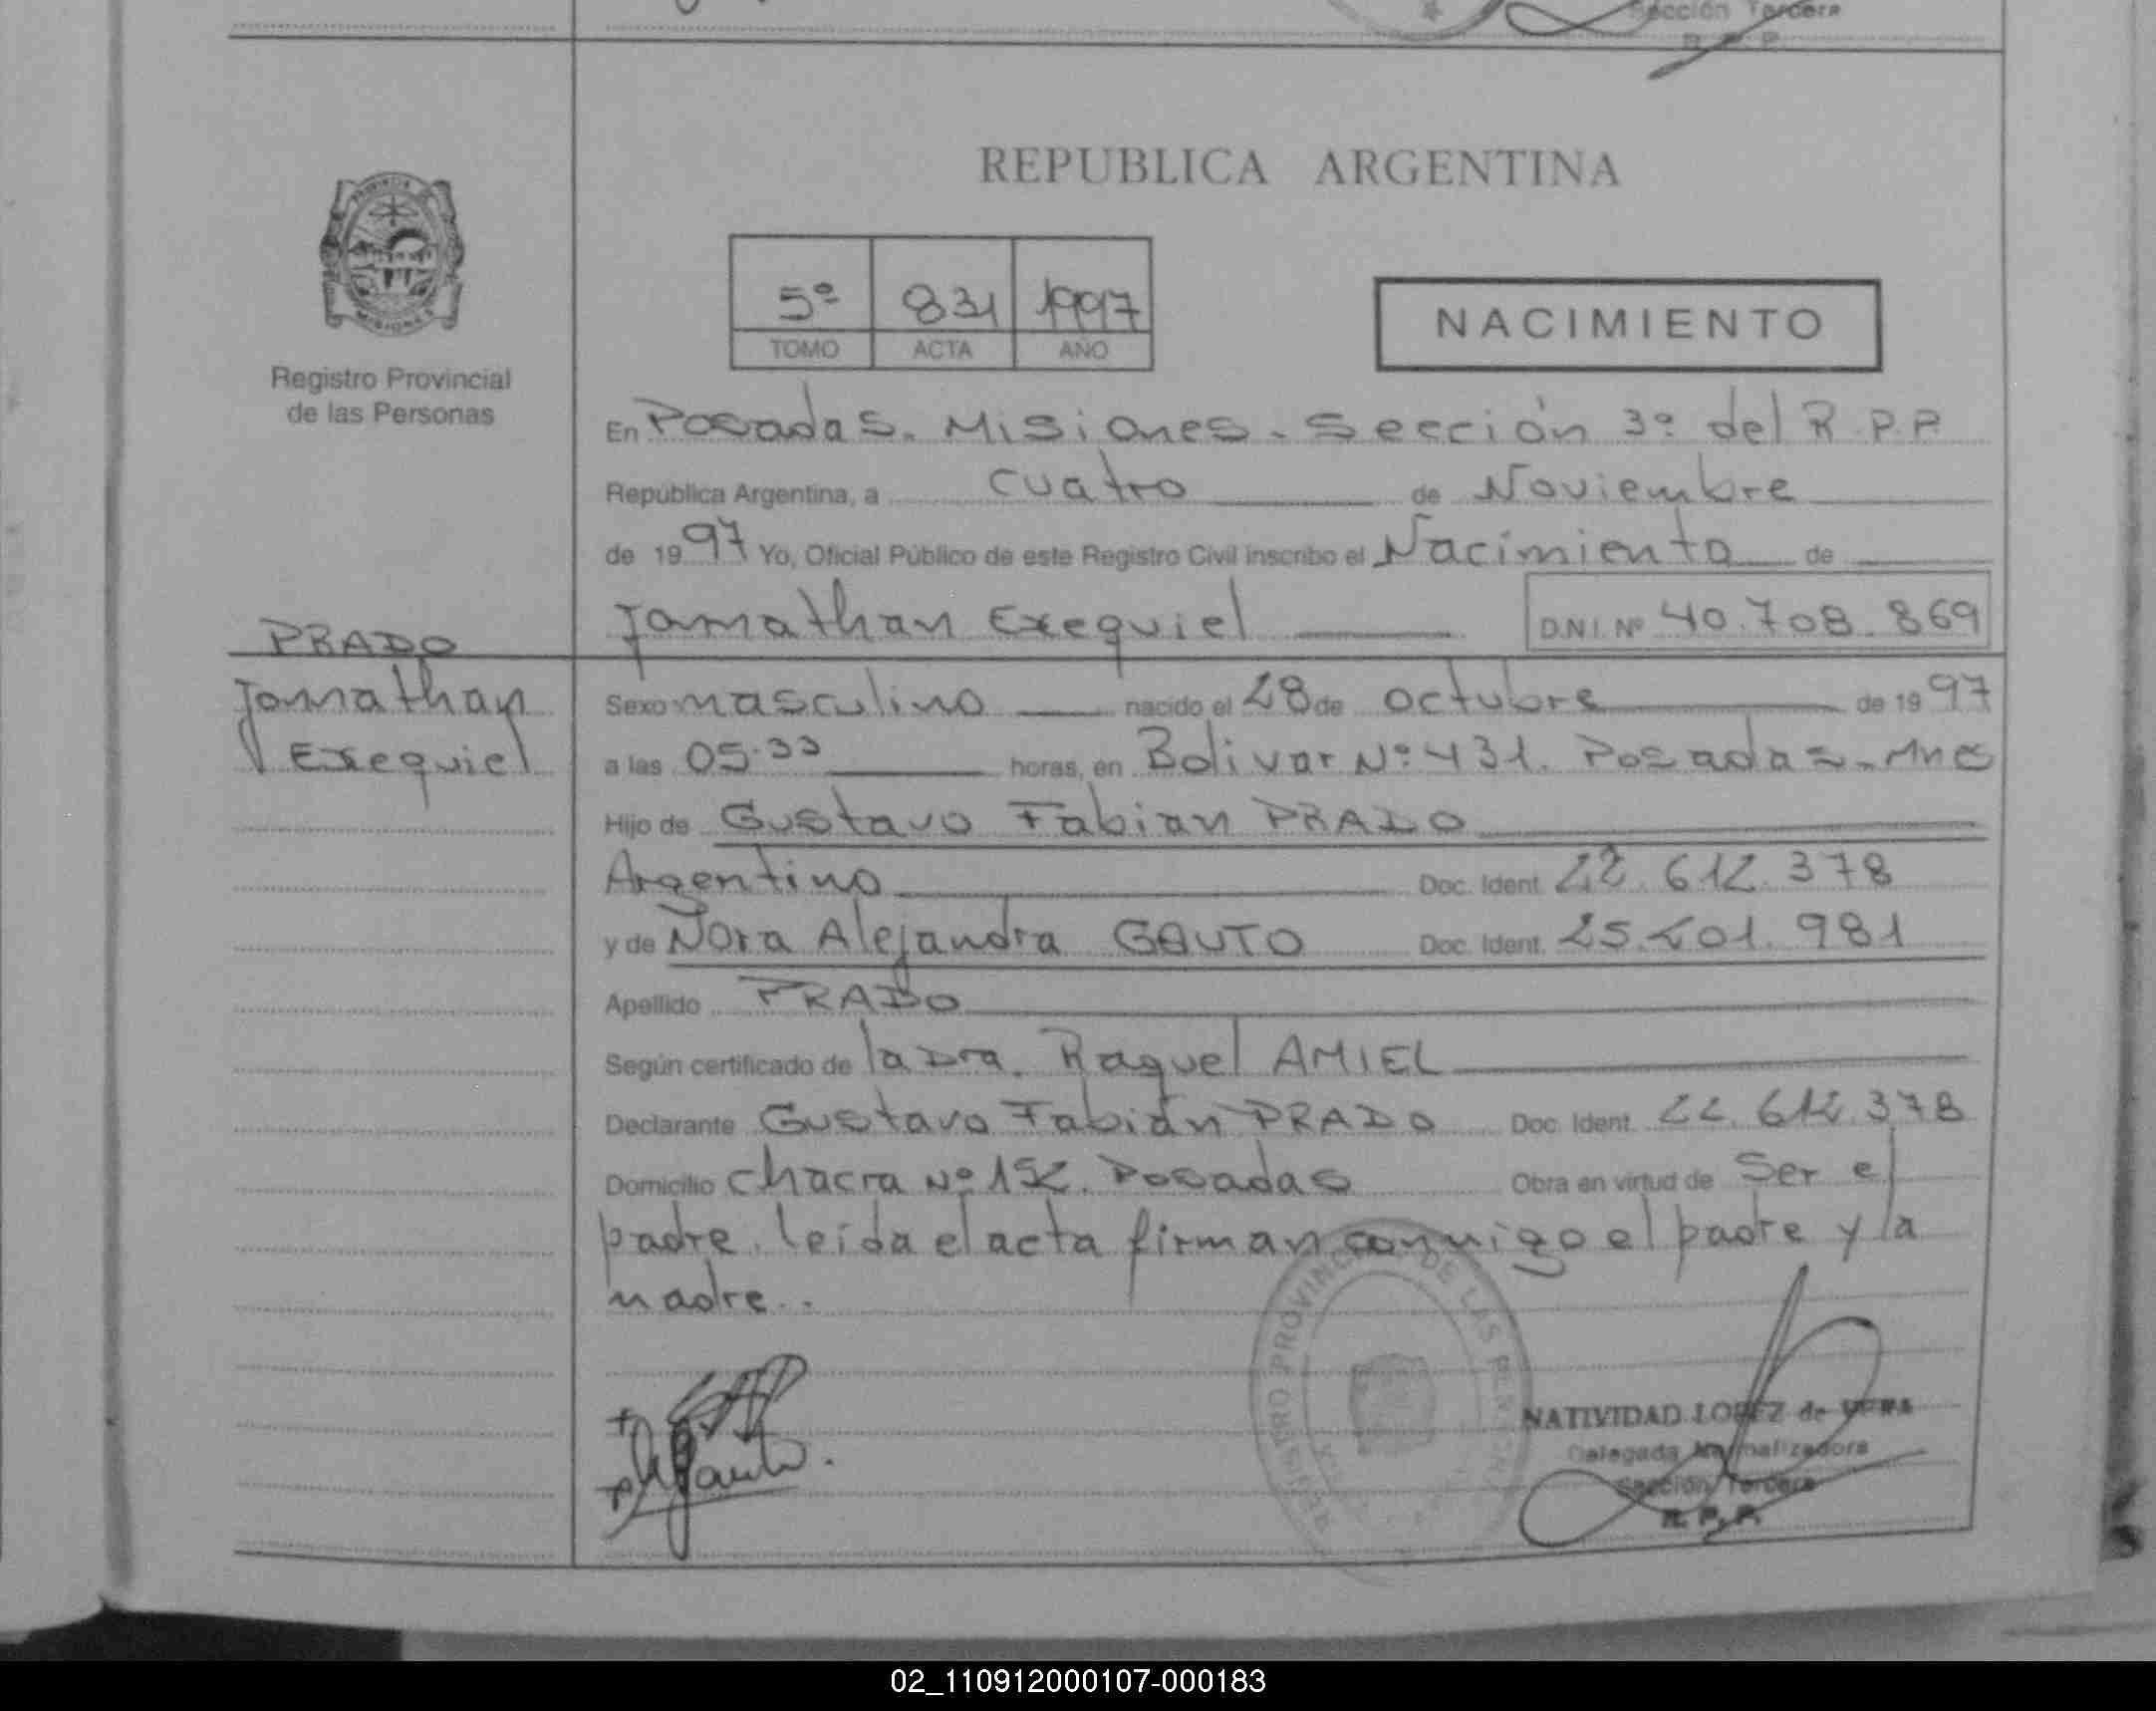 Sección Tercera
R. P. P.
REPUBLICA ARGENTINA
5º 831 1997
TOMO ACTA AÑO
NACIMIENTO
Registro Provincial
de las Personas
En Posadas. Misiones. Sección 3º del R.P.P.
República Argentina, a cuatro de Noviembre
de 1997 Yo, Oficial Público de este Registro Civil inscribo el Nacimiento de
Jonathan Exequiel D.N.I. Nº 40.708.869
PRADO
Jonathan
Exequiel
Sexo masculino nacido el 28 de octubre de 1997
a las 05:33 horas, en Bolivar Nº 431. Posadas. Mnes
Hijo de Gustavo Fabian PRADO
Argentino Doc. Ident. 22.612.378
y de Nora Alejandra GAUTO Doc. Ident. 25.201.981
Apellido PRADO
Según certificado de la Dra. Raquel AMIEL
Declarante Gustavo Fabián PRADO Doc. Ident. 22.612.378
Domicilio chacra Nº 152. Posadas Obra en virtud de Ser el
padre. leída el acta firman conmigo el padre y la
madre..
REGISTRO PROVINCIAL DE LAS PERSONAS
NATIVIDAD LOPEZ de VERA
Delegada Normalizadora
Sección Tercera
R. P. P.
02_110912000107-000183